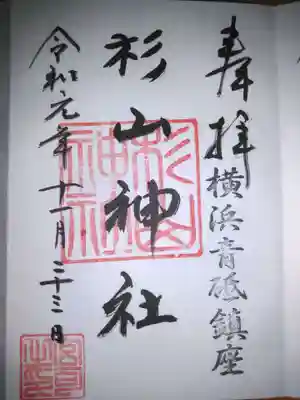 奉拝
横浜青砥鎮座
杉山神社
杉山
神社
令和元年十一月二十三日